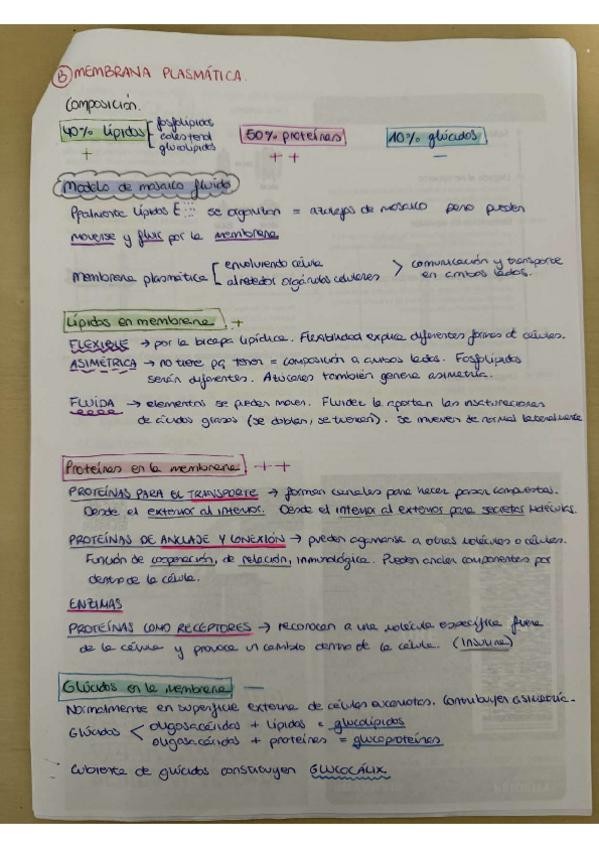 B) MEMBRANA PLASMÁTICA.
Composición.
40% lípidos [ fosfolípidos
colesterol
glucolípidos
50% proteínas
10% glúcidos
+
++
-
Modelo de mosaico fluido
Ppalmente lípidos E se organizan = azulejos de mosaico pero pueden
moverse y fluir por la membrana
membrana plasmática [ envolviendo célula
alrededor orgánulos celulares
> comunicación y transporte
en ambos lados.
Lípidos en membrana +
FLEXIBLE → por la bicapa lipídica. Flexibilidad explica diferentes formas de células.
ASIMÉTRICA → no tiene pq tener = composición a ambos lados. Fosfolípidos
serán diferentes. Azúcares también genera asimetría.
FLUÍDA → elementos se pueden mover. Fluidez la aportan las insaturaciones
de ácidos grasos (se doblan, se tuercen). Se mueven de normal lateralmente
Proteínas en la membrana ++
PROTEÍNAS PARA EL TRANSPORTE → forman canales para hacer pasar compuestos.
Desde el exterior al interior. Desde el interior al exterior para secretar moléculas.
PROTEÍNAS DE ANCLAJE Y CONEXIÓN → pueden agarrarse a otras moléculas o células.
Función de cooperación, de relación, inmunológica. Pueden anclar componentes por
dentro de la célula.
ENZIMAS
PROTEÍNAS COMO RECEPTORES → reconocen a una molécula específica fuera
de la célula y provoca un cambio dentro de la célula. (Insulina)
Glúcidos en la membrana -
Normalmente en superficie externa de células eucariotas. Contribuyen asimetría.
Glúcidos < oligosacáridos + lípidos = glucolípidos
oligosacáridos + proteínas = glucoproteínas
Cubierta de glúcidos constituyen GLUCOCÁLIX